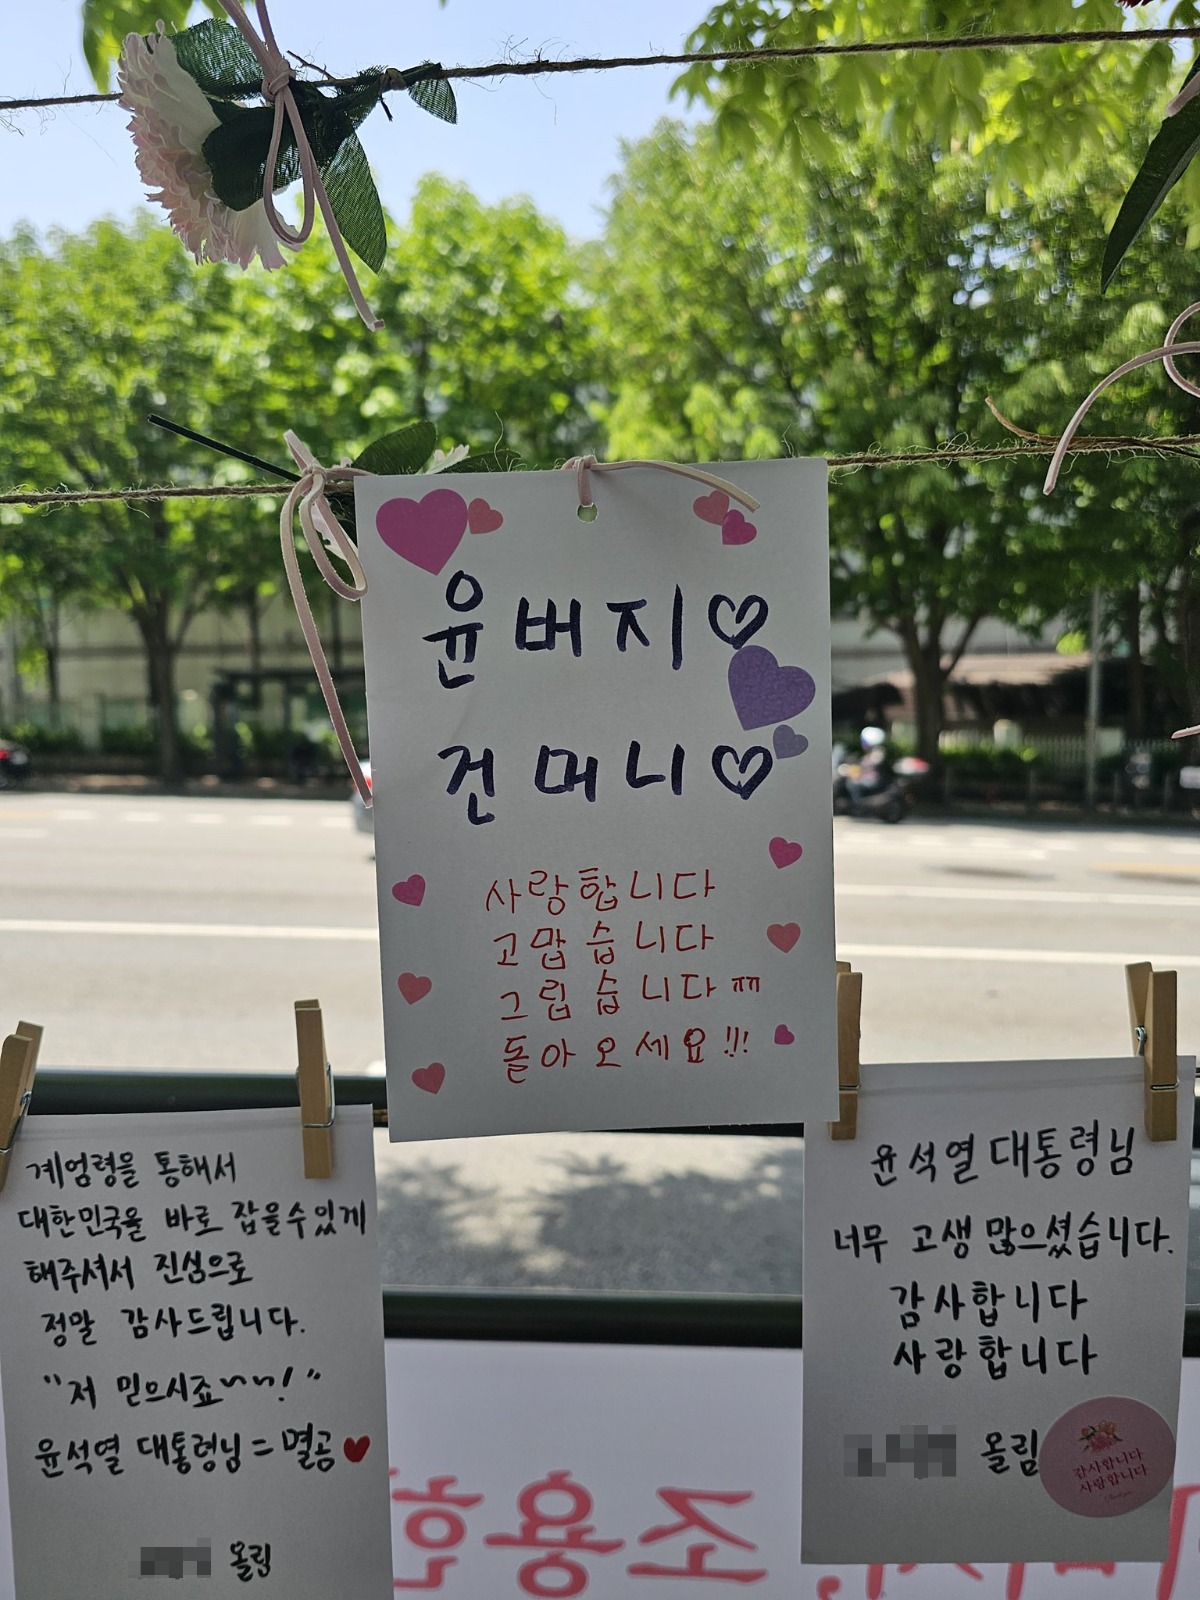 윤버지♡
건머니♡
사랑합니다
고맙습니다
그립습니다ㅠㅠ
돌아오세요!!!
계엄령을 통해서
대한민국을 바로 잡을수있게
해주셔서 진심으로
정말 감사드립니다.
"저 믿으시죠~~!"
윤석열 대통령님=멸공♥
올림
윤석열 대통령님
너무 고생 많으셨습니다.
감사합니다
사랑합니다
올림
감사합니다
사랑합니다
조용한